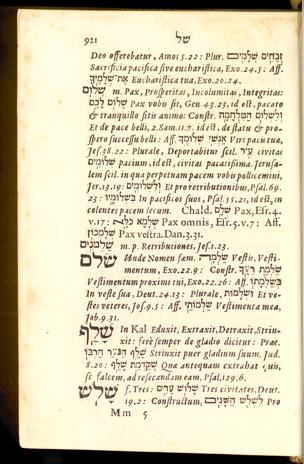 921 של
Deo offerebatur, Amos 5.22: Plur. זבחים שלמים
Sacrificia pacifica sive eucharistica, Exo.24.5: Aff.
Eucharistica tua, Exo.20.24. את־שלמיך
שלום m. Pax, Prosperitas, Incolumitas, Integritas:
שלום לכם Pax vobis sit, Gen.43.23, id est, pacato
& tranquillo sitis animo: Constr. ולשלום המלחמה
Et de pace belli, 2.Sam.11.7. id est, de statu & pro-
spero successu belli: Aff. אנשי שלומך Viri pacis tuæ,
Jes.38.22: Plurale, Deportabitur scil. עיר civitas
שלומים pacium, id est, civitas pacatissima. Jerusa-
lem scil. in qua perpetuam pacem vobis pollicemini,
Jer.13.19: ולשלומים Et pro retributionibus, Psal.69.
23: בשלומיו In pacificos suos, Psal.55.21, id est, in
colentes pacem secum. Chald. שלם Pax, Esr.4.
v.17: שלמא כלא Pax omnis, Esr.5.v.7: Aff.
שלמכון Pax vestra. Dan.3.31.
שלמנים m. p. Retributiones, Jes.1.23.
שלם Unde Nomen fœm. שלמה Vestis, Vesti-
mentum, Exo.22.9: Constr. שלמת רעך
Vestimentum proximi tui, Exo.22.26: Aff. בשלמתו
In veste sua, Deut.24.13: Plurale, ושלמות Et ve-
stes veteres, Jos.9.5: Aff. שלמותי Vestimenta mea,
Job.9.31.
שלף In Kal Eduxit, Extraxit, Detraxit, Strin-
xit: ferè semper de gladio dicitur: Præt.
שלף הנער חרבו Strinxit puer gladium suum, Jud.
8.20: שקדמת שלף Quæ antequam extrahat quis,
se falcem, ad resecandam eam, Psal.129.6.
שלש f. Tres: שלוש ערים Tres civitates. Deut.
19.2: Constructum, לשלש השנים Pro
Mm 5